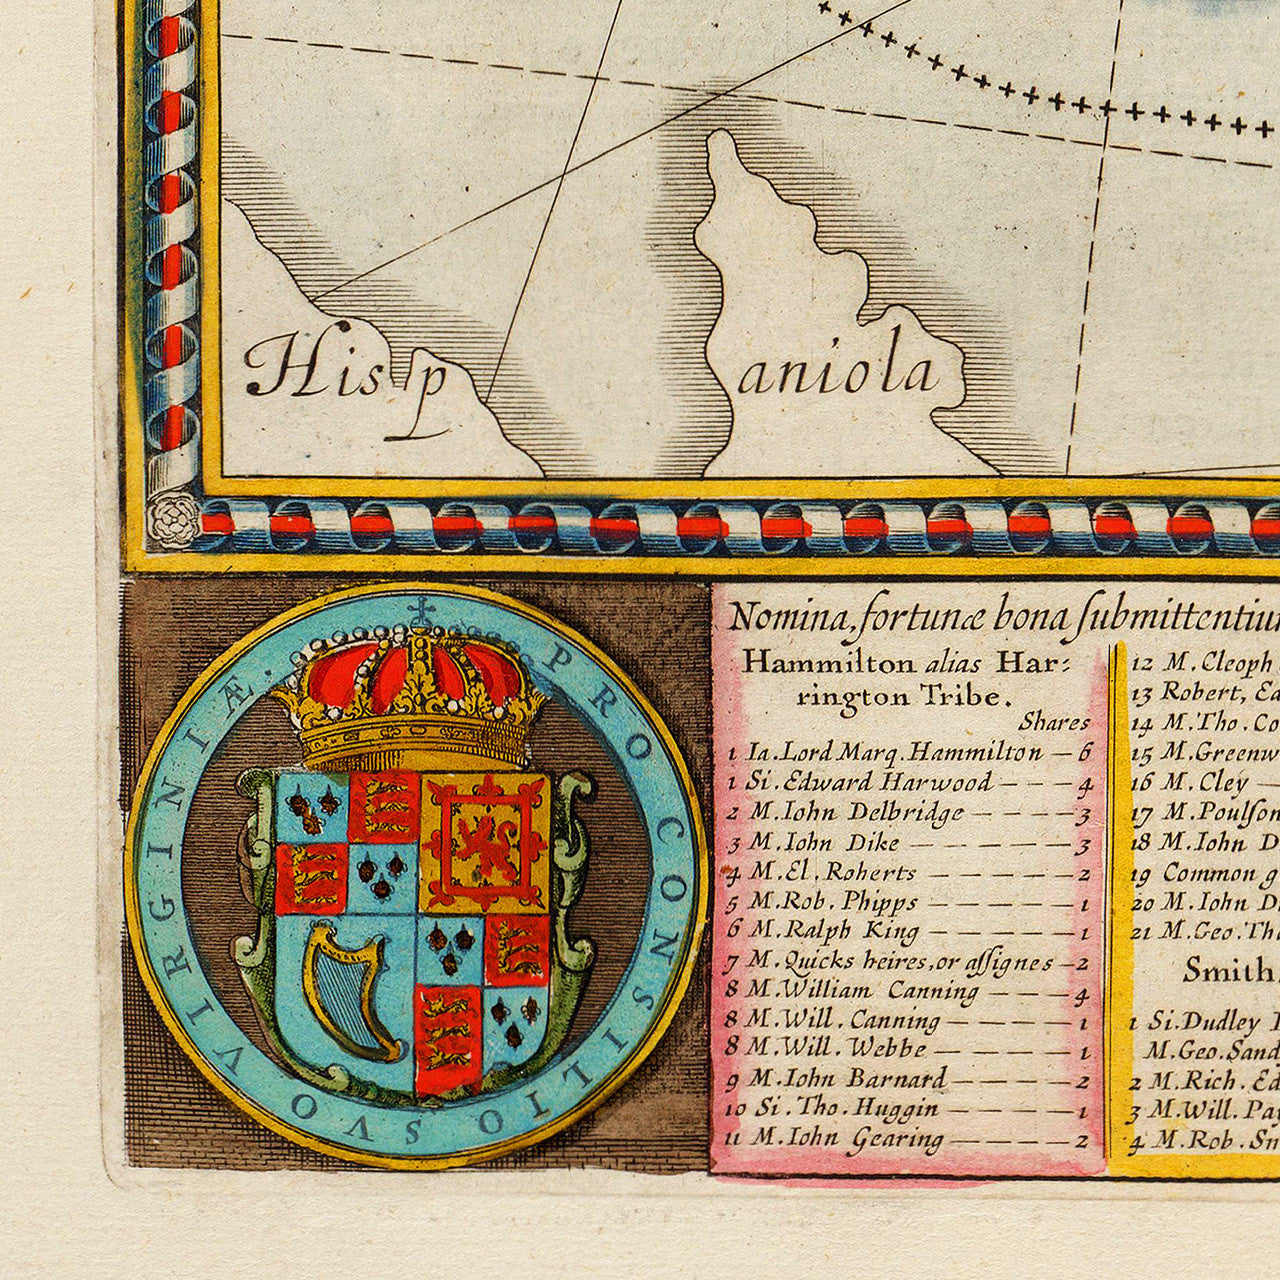 Hisp aniola
PRO CONSILIO SVO VIRGINIÆ.
Nomina, fortunæ bona submittentiu
Hammilton alias Har:
rington Tribe.
Shares
1 Ia. Lord Marq. Hammilton — 6
1 Si. Edward Harwood — — — 4
2 M. Iohn Delbridge — — — — 3
3 M. Iohn Dike — — — — — — 3
4 M. El. Roberts — — — — — 2
5 M. Rob. Phipps — — — — — 1
6 M. Ralph King — — — — — 1
7 M. Quicks heires, or assignes — 2
8 M. William Canning — — — 4
8 M. Will. Canning — — — — 1
8 M. Will. Webbe — — — — — 1
9 M. Iohn Barnard — — — — 2
10 Si. Tho. Huggin — — — — 1
11 M. Iohn Gearing — — — — 2
12 M. Cleoph
13 Robert, Ea
14 M. Tho. Co
15 M. Greenw
16 M. Cley —
17 M. Poulson
18 M. Iohn D
19 Common g
20 M. Iohn D
21 M. Geo. Tho
Smith
1 Si. Dudley
M. Geo. Sand
2 M. Rich. Ed
3 M. Will. Pa
4 M. Rob. Sm